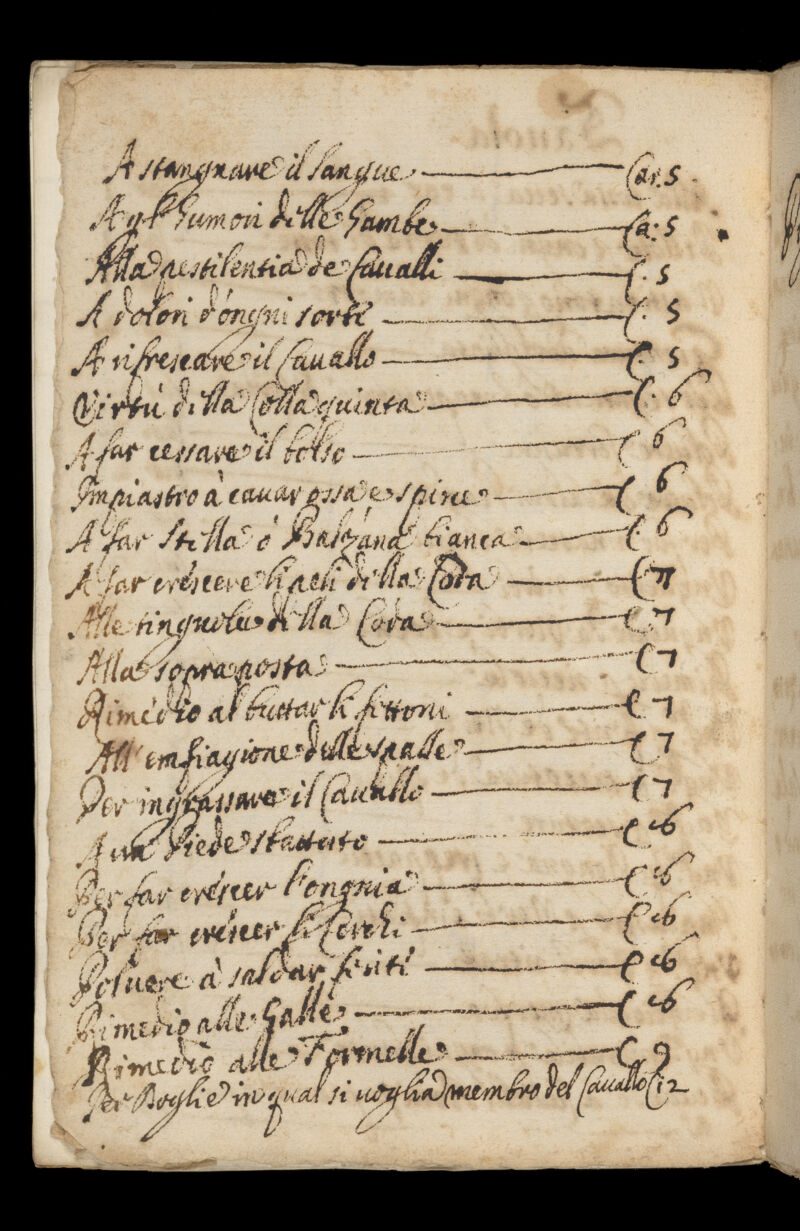 A stangnare il sangue Car. 5
A gl' humori delle Gambe Ca: 5
Alla pestilentia de Cavalli C. 5
A dolori d'ongni sorte C. 5
A rifrescare il Cavallo C. 5
Virtù della Colla quinta C. 6
A far cessare il bolso C 6
Impiastro à cavar ossa e spine C 6
A far Stella ó Balzana bianca C. 6
A far créscere li peli della Coda C 7
Alle tingnole della Coda C 7
Alla sopra posta C 7
Rimedio al buttar li fettoni C 7
All' emfiagione delle spalle C 7
Per ingrassare il Cavallo C 7
A un Piede sbattuto C
Per far créscer l'ongnia C
Per far créscer li Cerchi C
Polvere à saldar ferite C
Rimedio alle Galle C
Rimedio alle Formelle C 9
Per Doglie in qual si voglia membro del Cavallo C 12